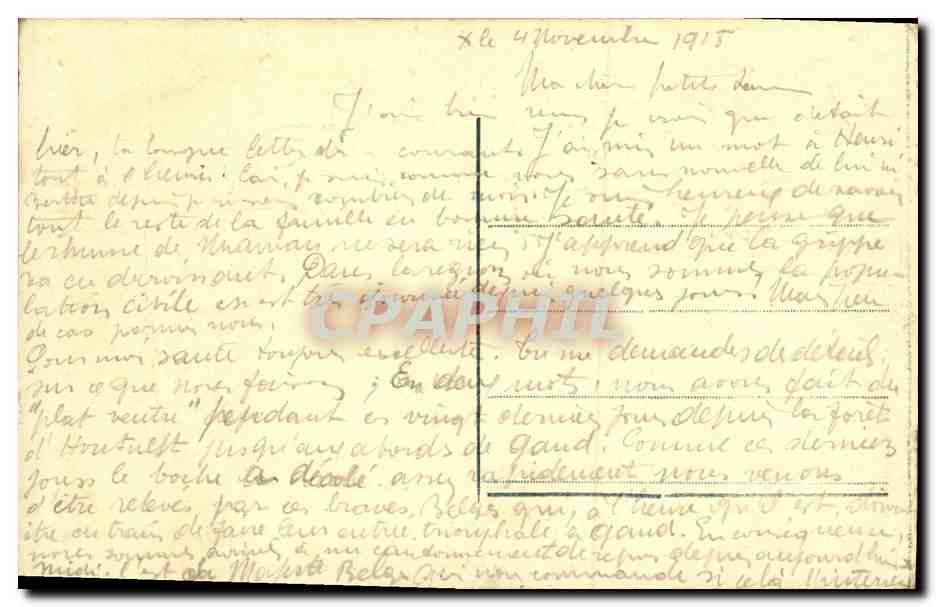 le 4 Novembre 1918
Ma chère petite
J'ai bien reçu je crois que c'était
hier, ta longue lettre du courant. J'ai mis un mot à Henri
tout à l'heure. Car, je suis, comme vous sans nouvelle de lui
depuis je ne sais combien de mois. Je suis heureux de savoir
tout le reste de la famille en bonne santé. Je pense que
le rhume de Maman ne sera rien. J'apprends que la grippe
va en diminuant. Dans la région où nous sommes la popu-
lation civile en est très éprouvée depuis quelques jours. Mais peu
de cas parmi nous.
Pour moi, santé toujours excellente. Tu me demandes des détails
sur ce que nous faisons ; En deux mots, nous avons fait du
"plat ventre" pendant ces vingt derniers jours depuis la forêt
d'Houtulst jusqu'aux abords de Gand. Comme ces derniers
jours le boche a décollé assez rapidement nous venons
d'être relevés par ces braves Belges qui, à l'heure qu'il est, doivent
être en train de faire leur entrée triomphale à Gand. En conséquence,
nous sommes arrivés à un cantonnement de repos depuis aujourd'hui
midi. C'est Sa Majesté Belge qui nous commande si cela t'intéresse
CPAPHIL